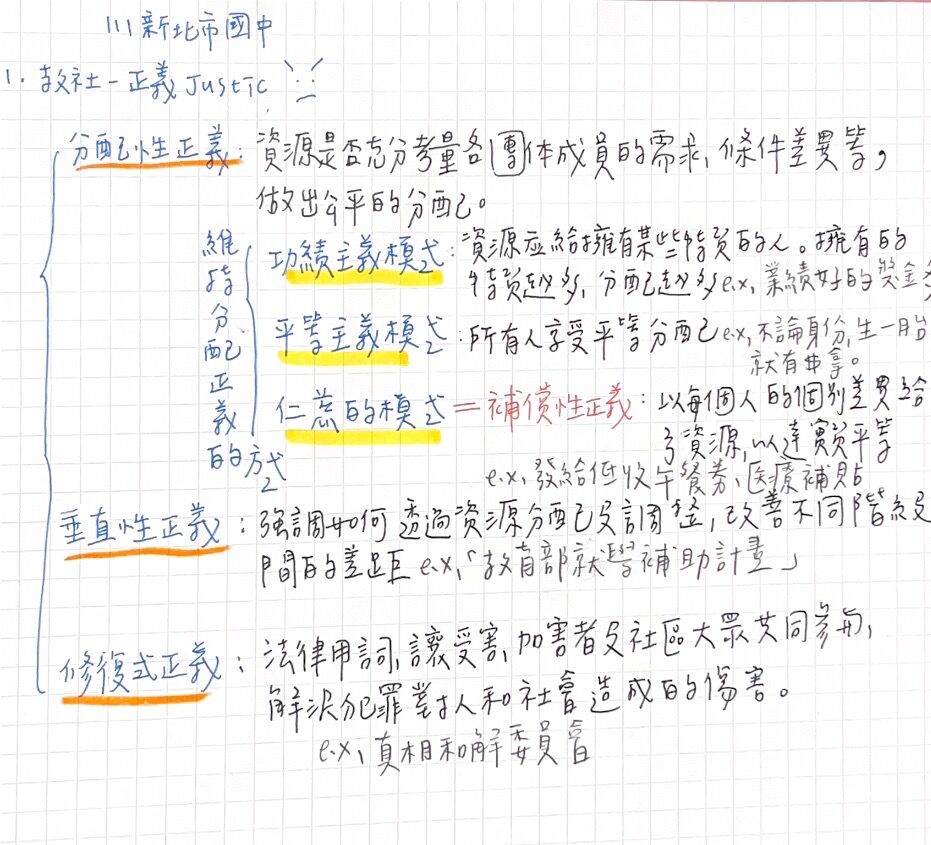 111新北市國中
1. 教社-正義 Justic
分配性正義：資源是否充分考量各團体成員的需求、條件差異等，
做出公平的分配。
維持分配正義的方式
功績主義模式：資源應給擁有某些特質的人。擁有的
特質越多，分配越多 e.x, 業績好的獎金多
平等主義模式：所有人享受平等分配 e.x, 不論身份，生一胎
就有 拿。
仁慈的模式＝補償性正義：以每個人的個別差異給
予資源，以達實質平等
e.x, 發給低收午餐券、医療補貼
垂直性正義：強調如何透過資源分配及調整，改善不同階級
間的差距 e.x,「教育部就學補助計畫」
修復式正義：法律用詞，讓受害、加害者及社區大眾共同參與，
解決犯罪對人和社會造成的傷害。
e.x, 真相和解委員會